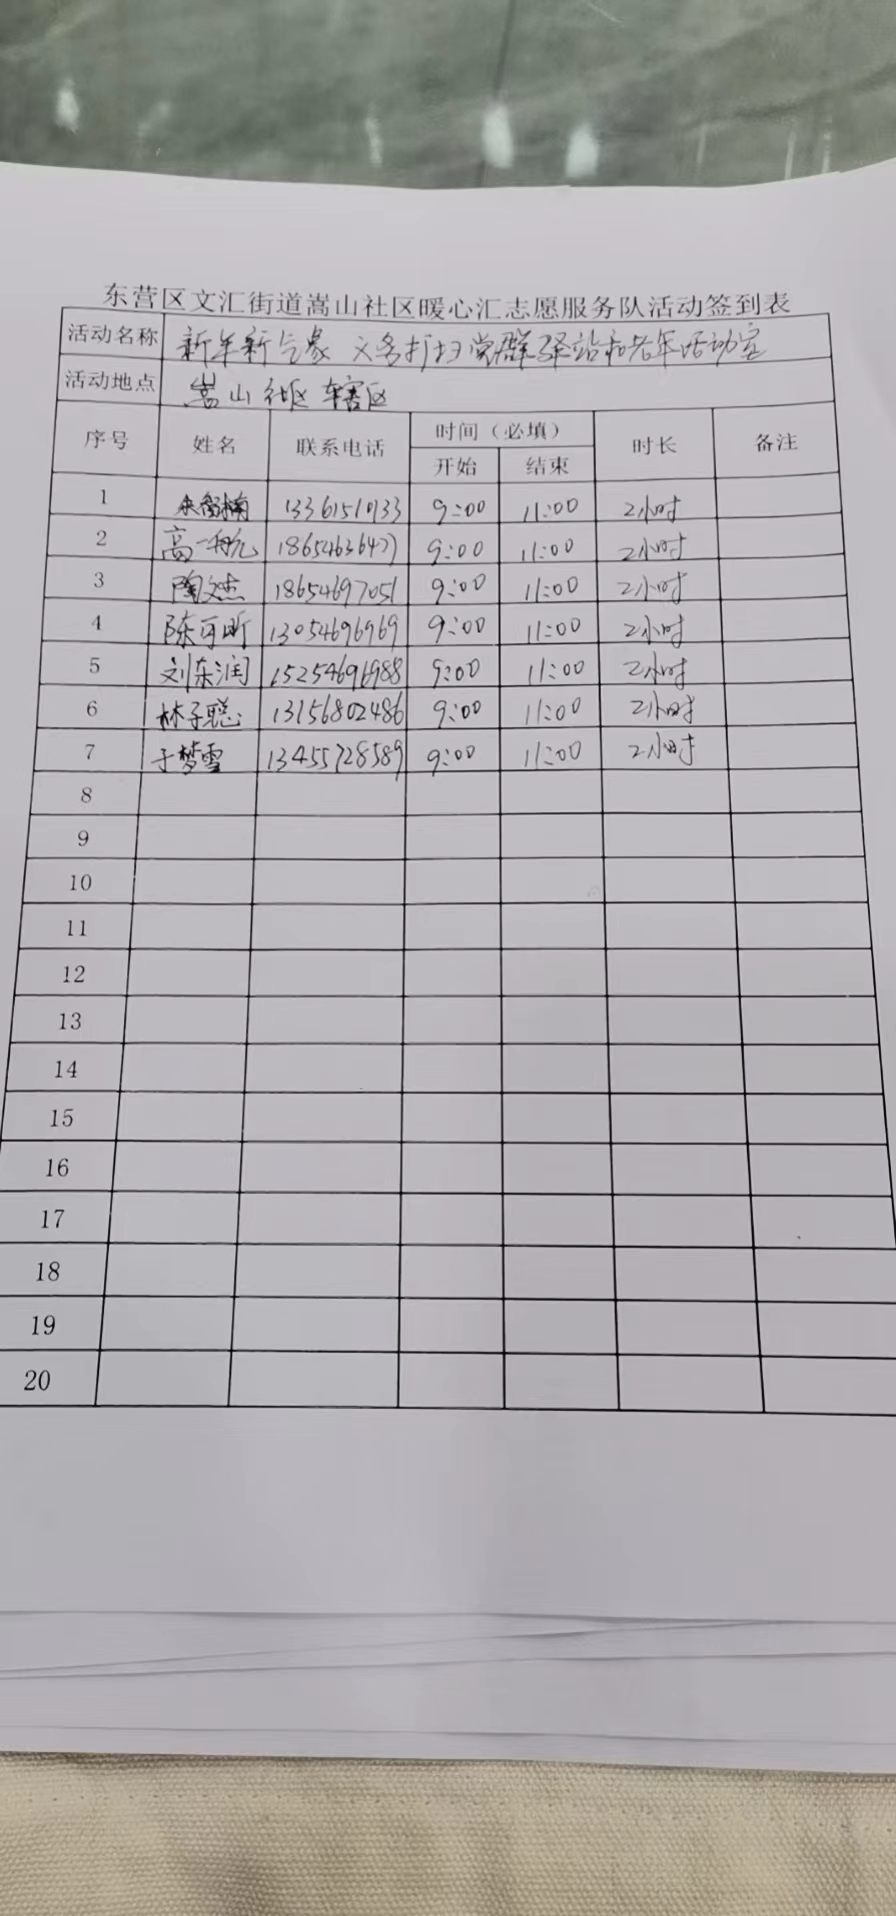 东营区文汇街道嵩山社区暖心汇志愿服务队活动签到表
活动名称 新年新气象 义务打扫党群驿站和老年活动室
活动地点 嵩山社区辖区
序号 姓名 联系电话 时间（必填） 时长 备注
开始 结束
1 13361511733 9:00 11:00 2小时
2 高一航 18654636477 9:00 11:00 2小时
3 陶文杰 18654697051 9:00 11:00 2小时
4 陈可昕 13054696969 9:00 11:00 2小时
5 刘东润 15254696988 9:00 11:00 2小时
6 林子聪 13156802486 9:00 11:00 2小时
7 于梦雪 13455728589 9:00 11:00 2小时
8
9
10
11
12
13
14
15
16
17
18
19
20